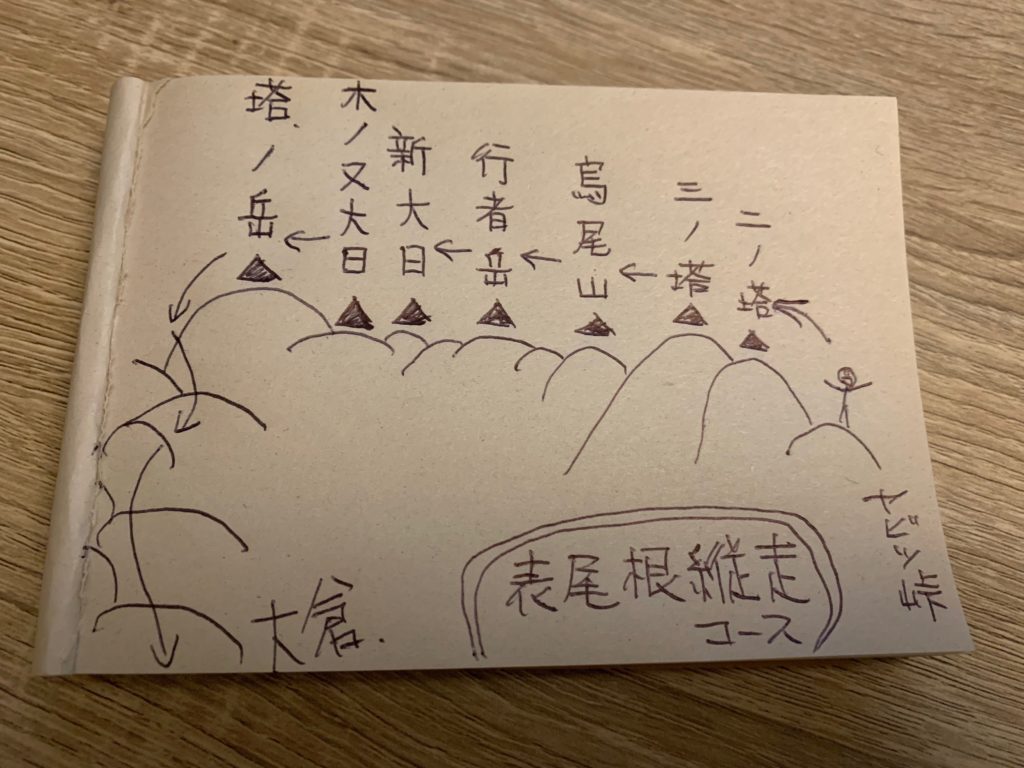 ヤビツ峠
二ノ塔
三ノ塔
烏尾山
行者岳
新大日
木ノ又大日
塔ノ岳
大倉
表尾根縦走
コース